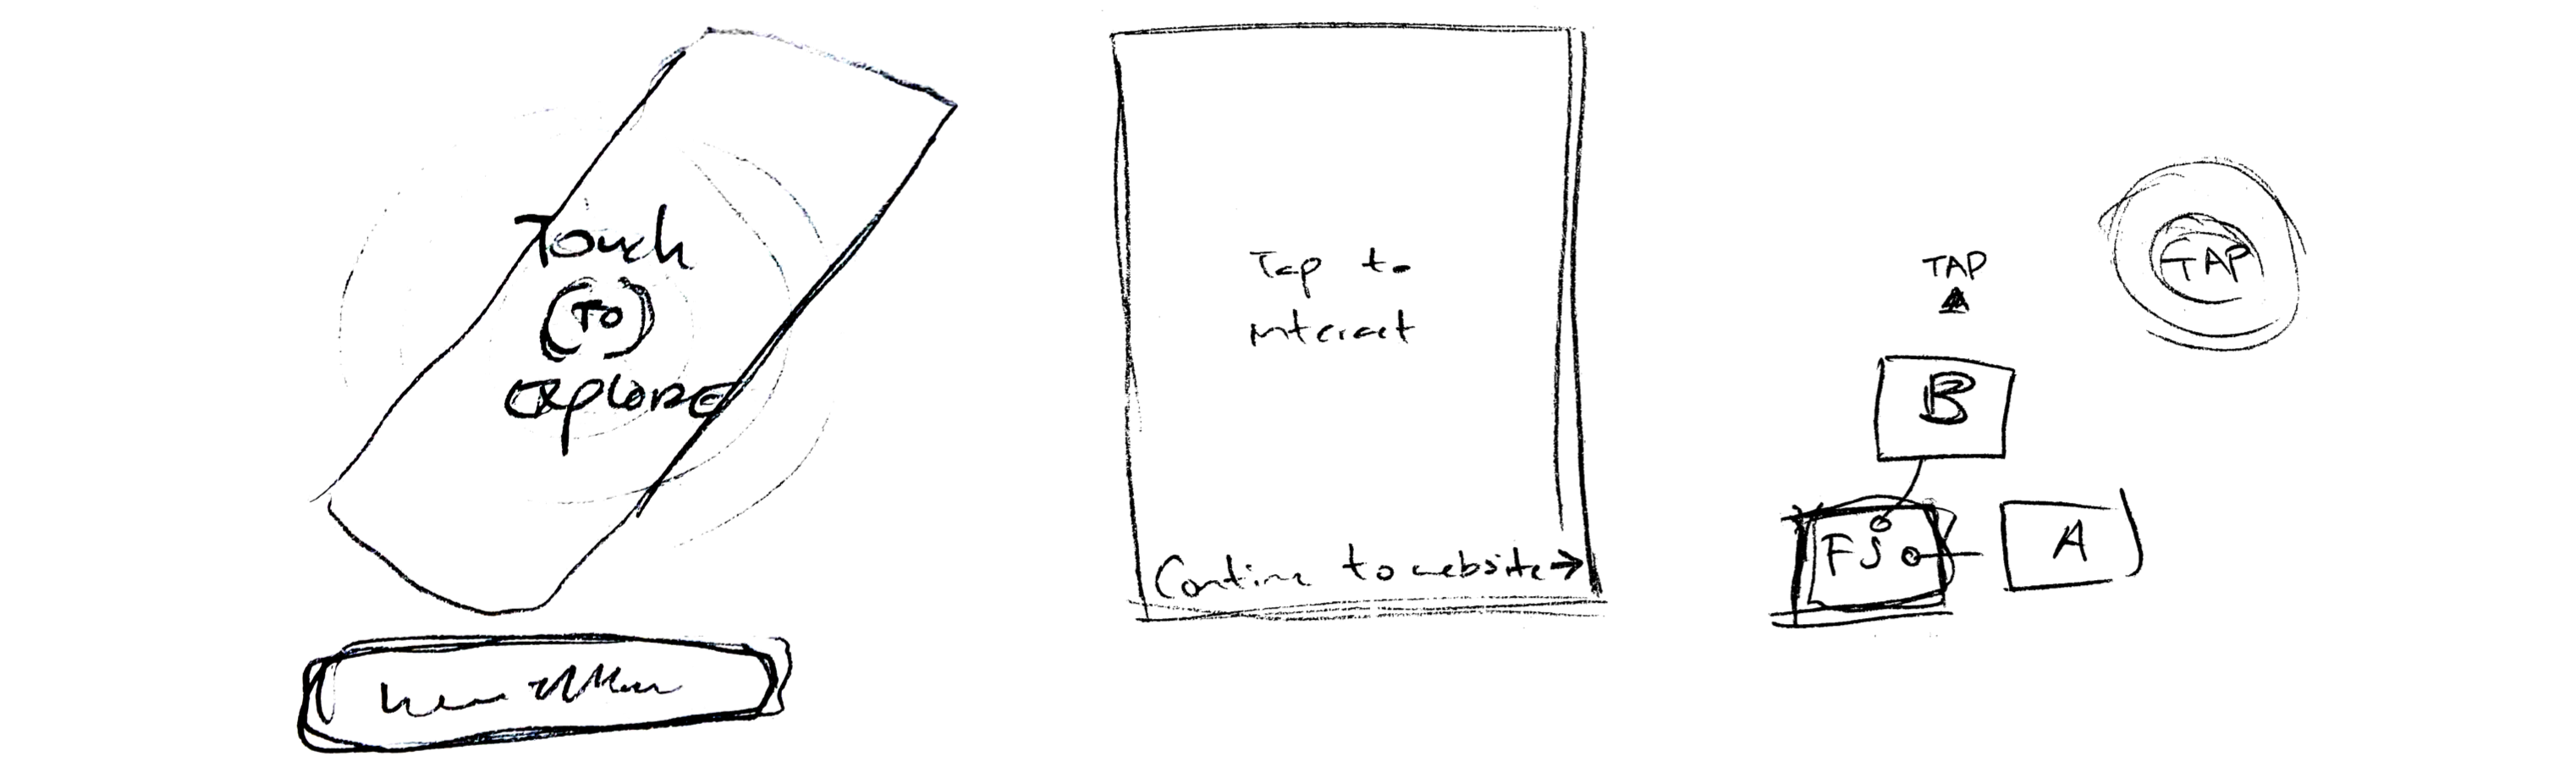 Touch
TO
Explore
Tap to
interact
Continue to website →
TAP
TAP
B
FS
A